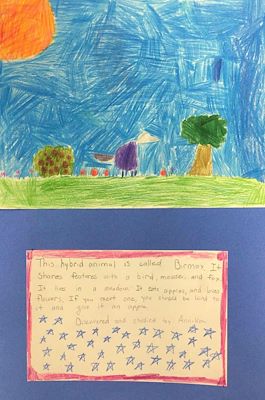 This hybrid animal is called Birmox. It
shares features with a bird, mouse, and fox
It lies in a meadow. It eats apples, and likes
flowers. If you meet one, you should be kind to
it and give it an apple.
Discovered and studied by